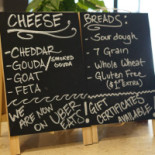 CHEESE
- CHEDDAR
- GOUDA / SMOKED GOUDA
- GOAT
- FETA
WE ARE NOW ON UBER EATS!
BREADS:
- Sourdough
- 7 Grain
- Whole Wheat
- Gluten Free
(.8¹ Extra)
GIFT CERTIFICATES AVAILABLE